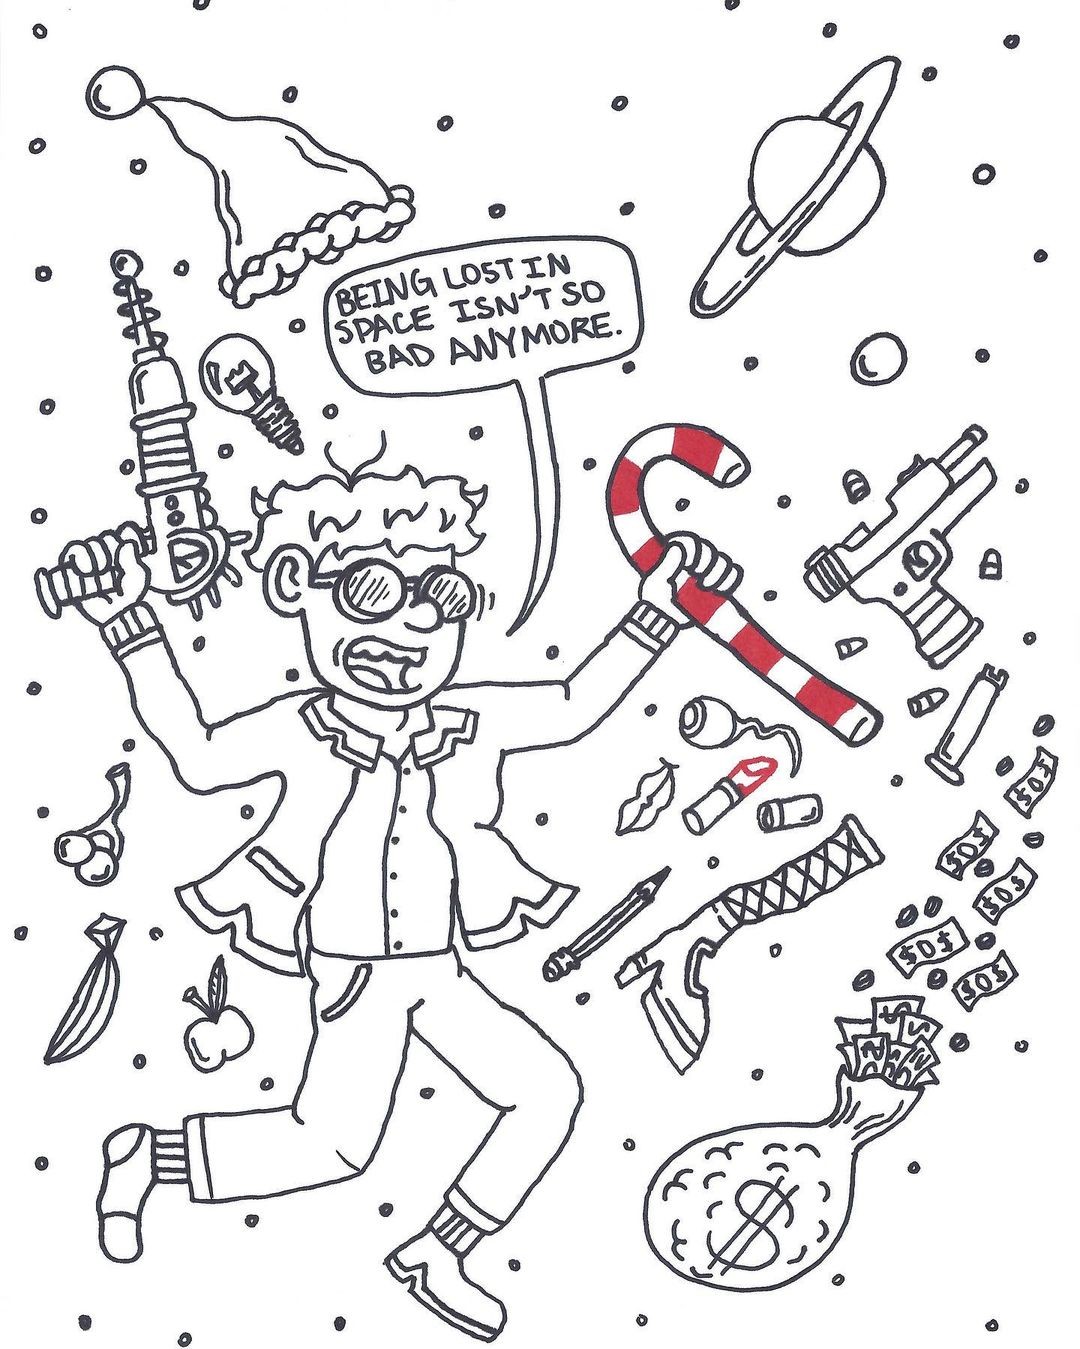 BEING LOST IN
SPACE ISN'T SO
BAD ANYMORE.
$0$
$0$
$0$
$0$
$0$
$